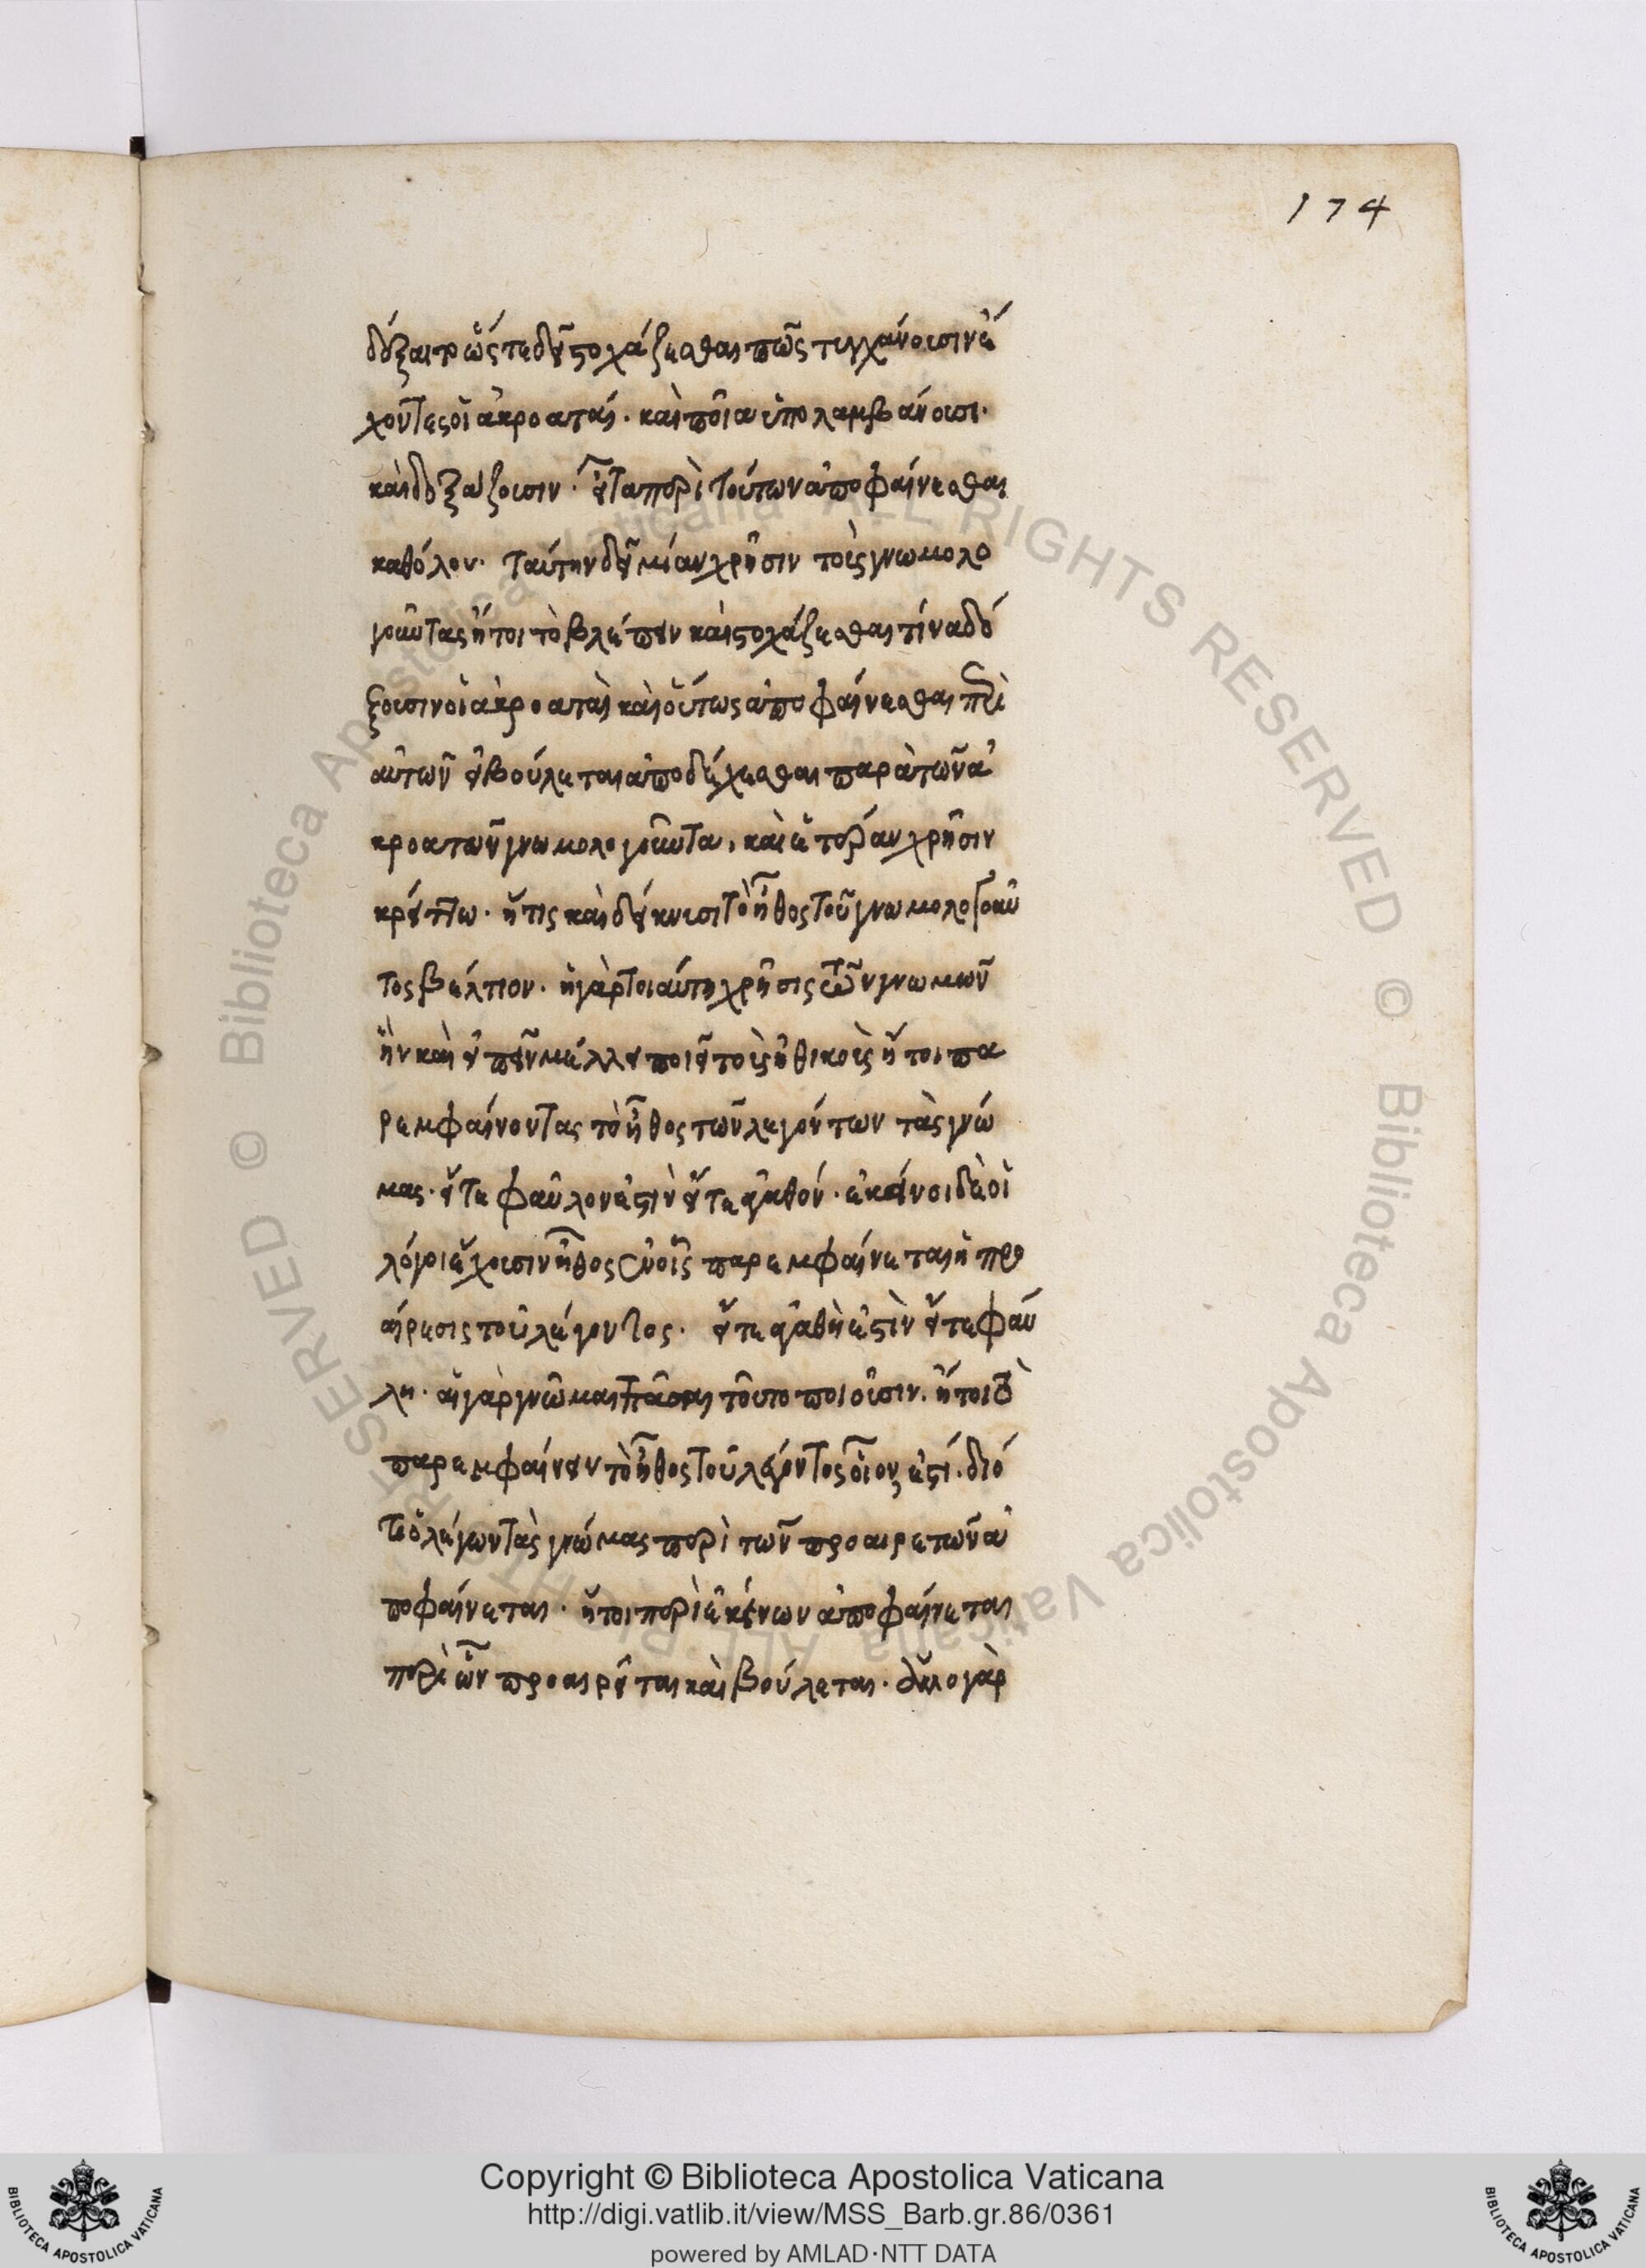 174
δόξαιτο ὥστε δεῖ στοχάζεσθαι πῶς τυγχάνουσιν ἔ
χοντες οἱ ἀκροαταί. καὶ ποῖα ὑπολαμβάνουσι.
καὶ δοξάζουσιν. εἶτα περὶ τούτων ἀποφαίνεσθαι
καθόλου. ταύτην δεῖ μίαν χρῆσιν τοὺς γνωμολο
γοῦντας ἤτοι τὸ βλέπειν καὶ στοχάζεσθαι τίνα δό
ξουσιν οἱ ἀκροαταὶ καὶ οὕτως ἀποφαίνεσθαι περὶ
αὐτῶν εἰ βούλεται ἀποδέχεσθαι παρὰ τῶν ἀ
κροατῶν γνωμολογοῦντα, καὶ ἑτέραν χρῆσιν
κρείττω. ἥτις καὶ δείκνυσι τὸ ἦθος τοῦ γνωμολογοῦν
τος βέλτιον. ἡ γὰρ τοιαύτη χρῆσις τῶν γνωμῶν
ἣν καὶ εἰπεῖν μέλλει ποιεῖ τοὺς ἠθικοὺς ἤτοι πα
ρεμφαίνοντας τὸ ἦθος τῶν λεγόντων τὰς γνώ
μας. εἴτε φαῦλον ἐστὶν εἴτε ἀγαθόν. ἐκεῖνοι δὲ οἱ
λόγοι ἔχουσιν ἦθος ἐν οἷς παρεμφαίνεται ἡ προ
αίρεσις τοῦ λέγοντος. εἴτε ἀγαθὴ ἐστὶν εἴτε φαύ
λη. αἱ γὰρ γνῶμαι πᾶσαι τοῦτο ποιοῦσιν. ἤτοι τὸ
παρεμφαίνειν τὸ ἦθος τοῦ λέγοντος οἷον ἐστί. διό
τι ὁ λέγων τὰς γνώμας περὶ τῶν προαιρετῶν ἀ
ποφαίνεται. ἤτοι περὶ ἐκείνων ἀποφαίνεται
περὶ ὧν προαιρεῖται καὶ βούλεται. ὁ γὰρ
Copyright © Biblioteca Apostolica Vaticana
http://digi.vatlib.it/view/MSS_Barb.gr.86/0361
powered by AMLAD·NTT DATA
BIBLIOTECA APOSTOLICA VATICANA
BIBLIOTECA APOSTOLICA VATICANA